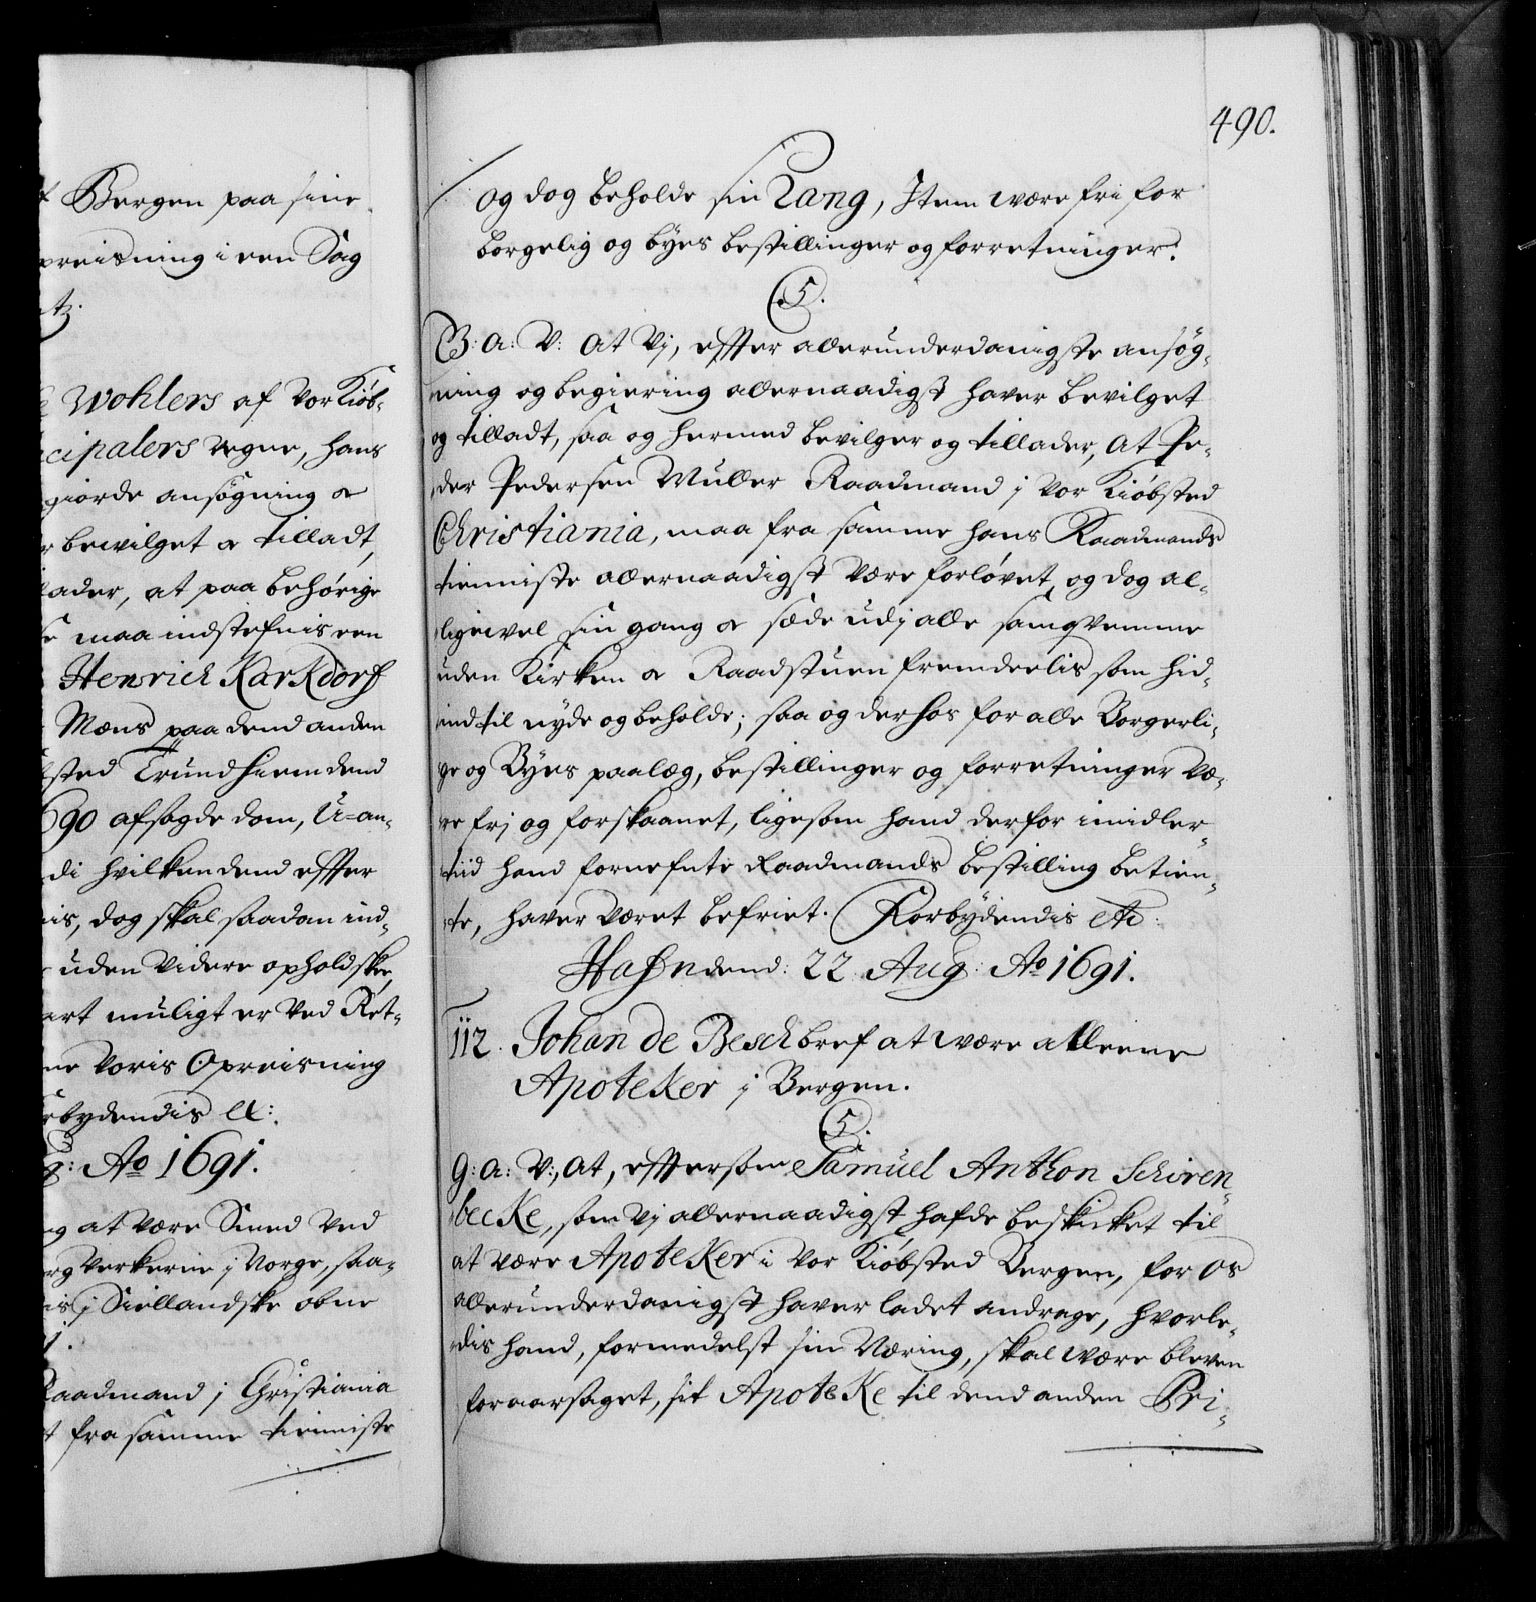 490.
Bergen paa sine
preisning i een Sag
Wohlers af Vor Kiøb-
cipalers vegne, hans
giorde ansøgning &
bevilget & tilladt,
lader, at paa behørige
maa indstefnis een
Henrich Karkdorf
Mæns paa dend anden
sted Trundhiem dend
690 afsagde dom, U-an-
di hvilken dend effter
is, dog skal saadan ind-
uden videre ophold skee,
art muligt er ved Ret-
ne Voris Opreisning
rbydendis etc:
g: Ao 1691.
g at være Smed ved
rg Verkerne j Norge, saa-
is j Siellandske obne
Raadmand j Christiania
t fra samme tienniste
og dog beholde sin Rang, Item være fri for
borgelig og byes bestillinger og forretninger.
5.
G: A: V: At Vj, effter allerunderdanigste ansøg-
ning og begiering allernaadigst haver bevilget
og tilladt, saa og hermed bevilger og tillader, At Pe-
der Pedersen Muller Raadmand j Vor Kiøbsted
Christiania, maa fra samme hans Raadmands
tienniste allernaadigst være forløvet, og dog al-
ligevel sin gang & sæde udj alle samqvemme
uden Kirken & Raadstuen fremdeelis som hid-
ind til nyde og beholde; saa og derhos for alle Borgerli-
ge og Byes paalæg, bestillinger og forretninger Væ-
re frj og forskaanet, ligesom hand derfor imidler-
tiid hand fornefnte Raadmands bestilling betien-
te, haver været befriet. Forbydendis etc:
Hafn dend: 22 Aug: Ao 1691.
112. Johan de Besch bref at være alleene
Apoteker j Bergen.
5.
G: A: V:, At, eftersom Samuel Anthon Schiren-
becke, som Vj allernaadigst hafde beskicket til
at være Apoteker i Vor Kiøbsted Bergen, for Os
allerunderdanigst haver ladet andrage, hvorle-
dis hand, formedelst sin Næring, skal være bleven
foraarsaget, sit Apoteke til dend anden Pri-